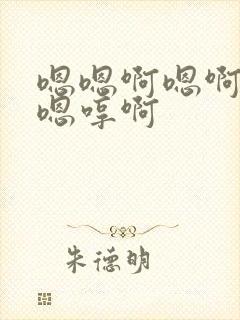 嗯嗯啊嗯啊
嗯哼啊
朱德明